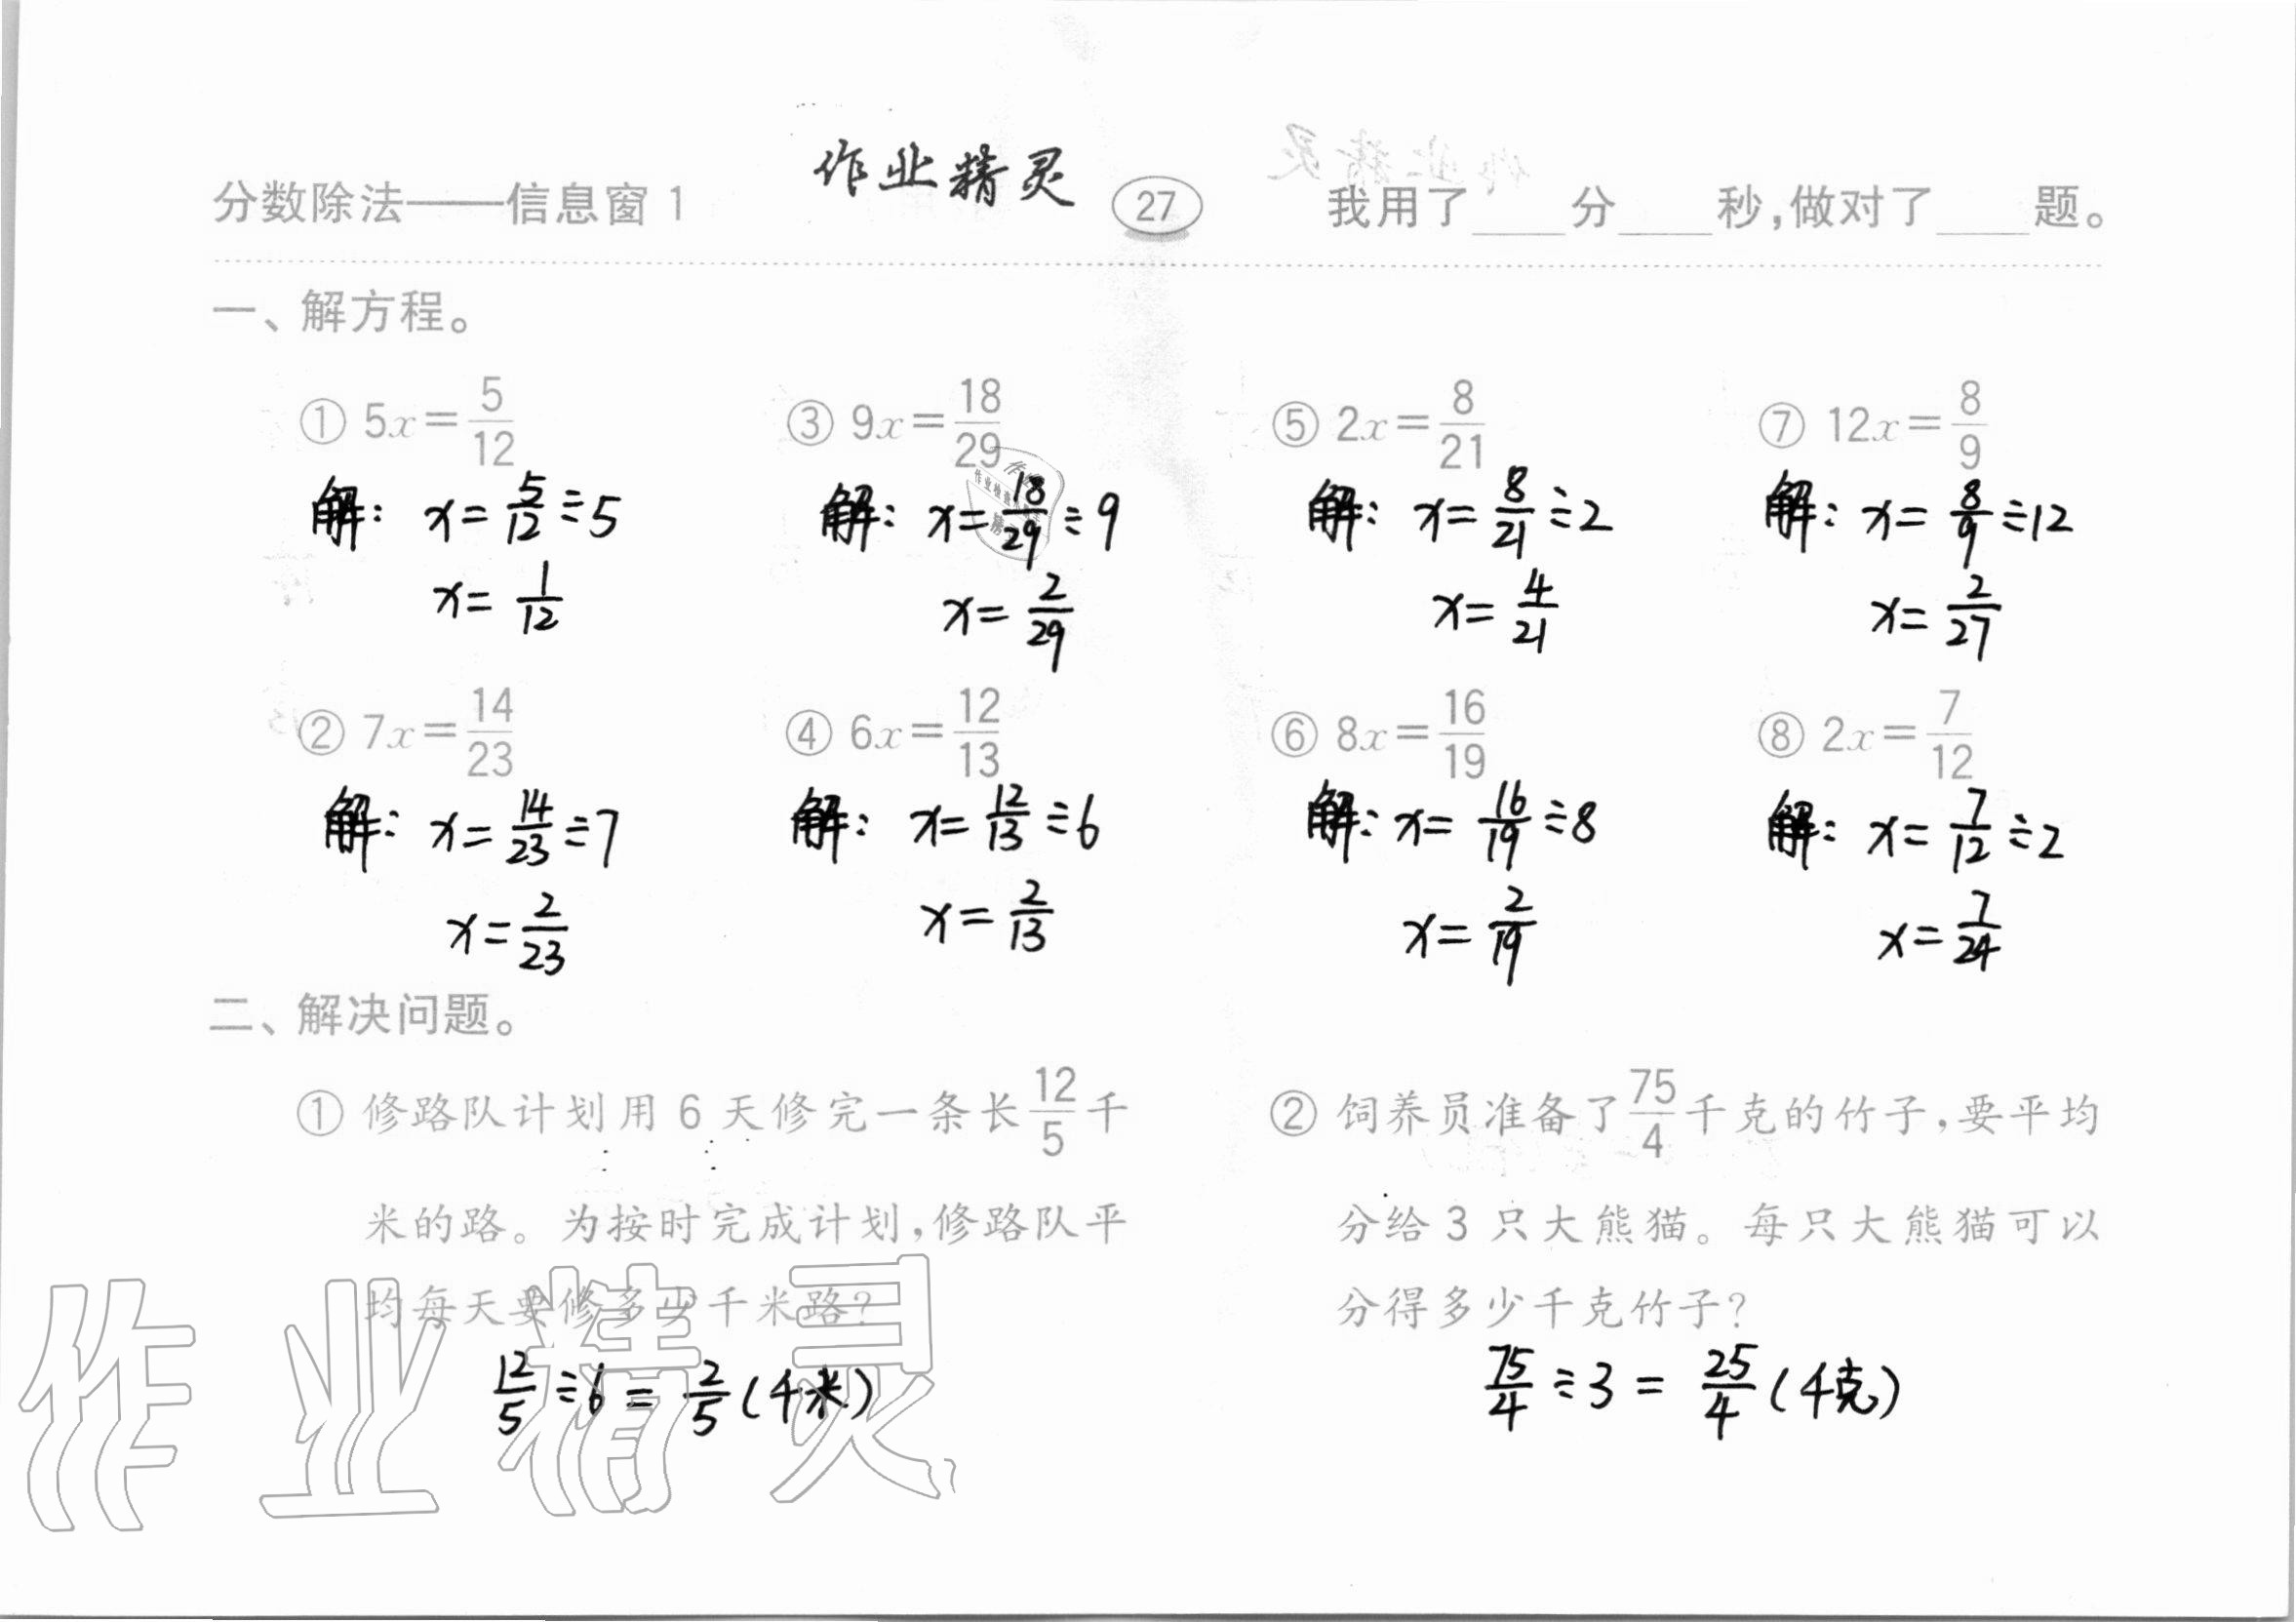 作业精灵
分数除法——信息窗 1 27 我用了____分____秒,做对了____题。
一、解方程。
① 5x=5/12 ③ 9x=18/29 ⑤ 2x=8/21 ⑦ 12x=8/9
解: x=5/12÷5 解: x=18/29÷9 解: x=8/21÷2 解: x=8/9÷12
x=1/12 x=2/29 x=4/21 x=2/27
② 7x=14/23 ④ 6x=12/13 ⑥ 8x=16/19 ⑧ 2x=7/12
解: x=14/23÷7 解: x=12/13÷6 解: x=16/19÷8 解: x=7/12÷2
x=2/23 x=2/13 x=2/19 x=7/24
二、解决问题。
① 修路队计划用 6 天修完一条长12/5千
米的路。为按时完成计划,修路队平
均每天要修多少千米路?
12/5÷6=2/5(千米)
② 饲养员准备了75/4千克的竹子,要平均
分给 3 只大熊猫。每只大熊猫可以
分得多少千克竹子?
75/4÷3=25/4(千克)
作业精灵